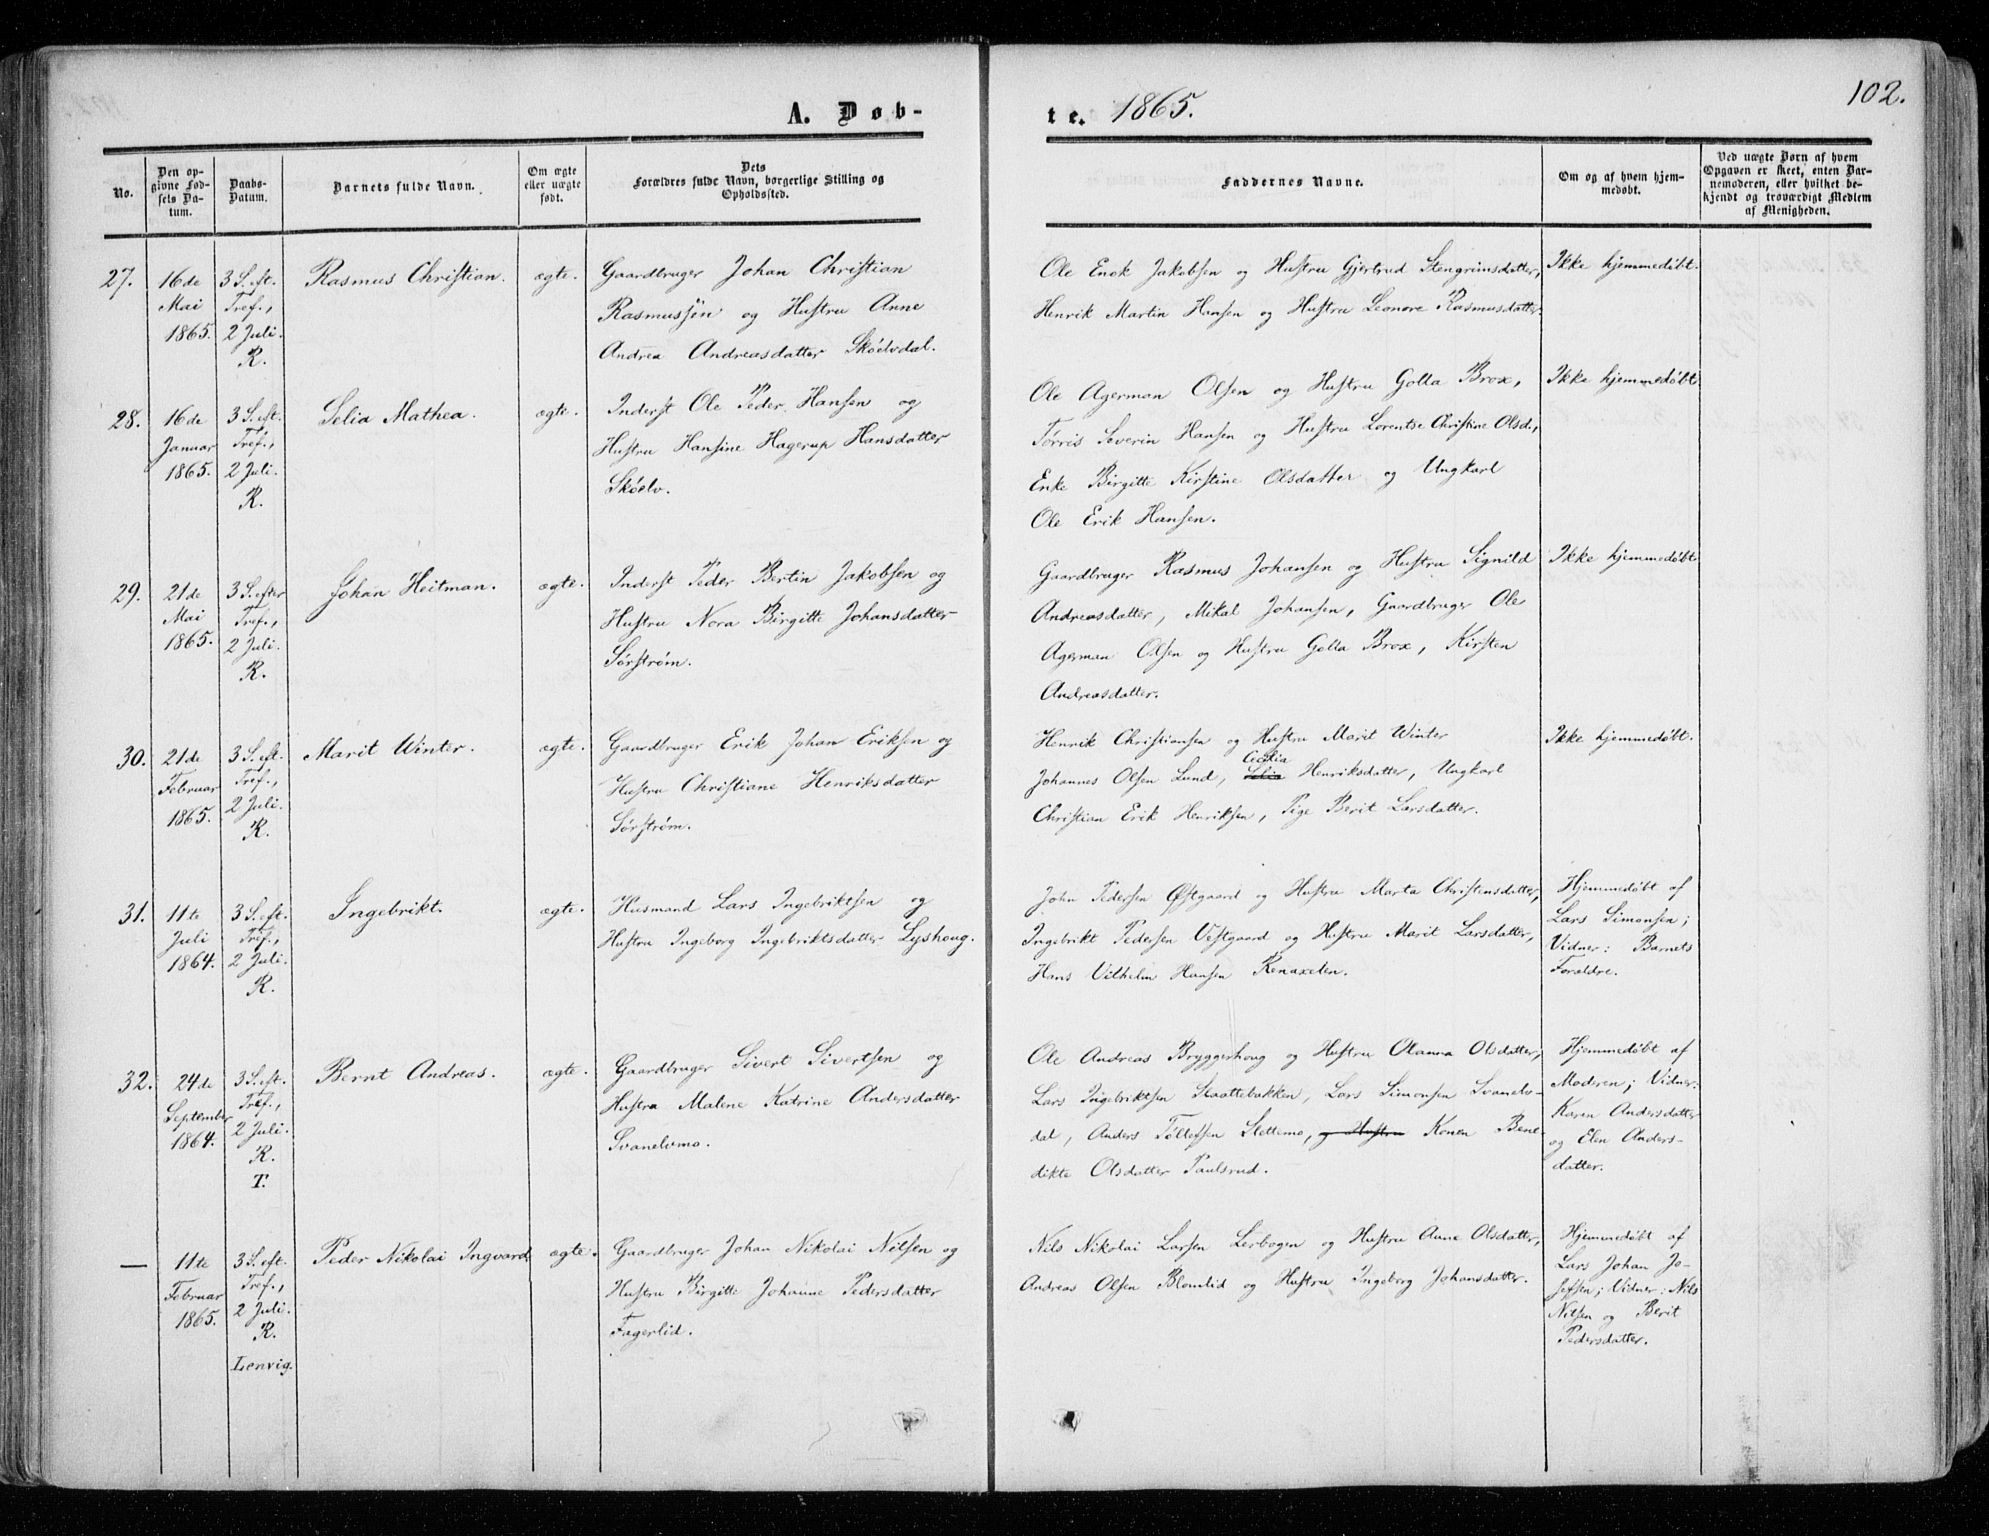 102.
A. Døb-
te. 1865.
No.
Den op-
givne Fød-
sels Da-
tum.
Daabs-
Datum.
Barnets fulde Navn.
Om ægte
eller uægte
født.
Dets
Forældres fulde Navn, borgerlige Stilling og
Opholdssted.
Faddernes Navne.
Om og af hvem hjem-
medøbt.
Ved uægte Børn af hvem
Opgaven er skeet, enten Bar-
nemoderen, eller hvilket be-
kjendt og troværdigt Medlem
af Menigheden.
27.
16de
Mai
1865.
3 S. eft.
Tref.,
2 Juli.
R.
Rasmus Christian.
ægte.
Gaardbruger Johan Christian
Rasmussen og Hustru Anne
Andrea Andreasdatter Sköelvdal.
Ole Enok Jakobsen og Hustru Gjertrud Stengrimsdatter,
Henrik Martin Hansen og Hustru Leonore Rasmusdatter.
Ikke hjemmedøbt.
28.
16de
Januar
1865.
3 S. eft.
Tref.,
2 Juli.
R.
Selia Mathea.
ægte.
Inderst Ole Peder Hansen og
Hustru Hansine Hagerup Hansdatter
Sköelv.
Ole Agerman Olsen og Hustru Golla Brox,
Tørris Severin Hansen og Hustru Lorentse Christine Olsd.,
Enke Birgitte Kirstine Olsdatter og Ungkarl
Ole Erik Hansen.
Ikke hjemmedøbt
29.
21de
Mai
1865.
3 S. efter
Tref.,
2 Juli.
R.
Johan Heitman.
ægte.
Inderst Peder Bertin Jakobsen og
Hustru Nora Birgitte Johansdatter
Sørstrøm.
Gaardbruger Rasmus Johansen og Hustru Signild
Andreasdatter, Mikal Johansen, Gaardbruger Ole
Agerman Olsen og Hustru Golla Brox, Kirsten
Andreasdatter.
Ikke hjemmedøbt
30.
21de
Februar
1865.
3 S. eft.
Tref.,
2 Juli.
R.
Marit Winter.
ægte.
Gaardbruger Erik Johan Eriksen og
Hustru Christiane Henriksdatter
Sørstrøm.
Henrik Christiansen og Hustru Marit Winter
Cecilia
Johannes Olsen Lund, Selia Henriksdatter, Ungkarl
Christian Erik Henriksen, Pige Berit Larsdatter.
Ikke hjemmedøbt.
31.
11te
Juli
1864.
3 S. eft.
Tref.,
2 Juli.
R.
Ingebrikt.
ægte.
Husmand Lars Ingebriktsen og
Hustru Ingeborg Ingebriktsdatter Lyshoug.
John Pedersen Østgaard og Hustru Marta Christensdatter,
Ingebrikt Pedersen Vestgaard og Hustru Marit Larsdatter,
Hans Vilhelm Hansen Renaxelen.
Hjemmedøbt af
Lars Simonsen;
Vidner: Barnets
Forældre.
32.
24de
September
1864.
3 S. eft.
Tref.,
2 Juli.
R.
T.
Bernt Andreas.
ægte.
Gaardbruger Sivert Sivertsen og
Hustru Malene Katrine Andersdatter
Svanelvmo.
Ole Andreas Bryggerhoug og Hustru Olanna Olsdatter,
Lars Ingebriktsen Skaattebakken, Lars Simonsen Svanelv-
dal, Anders Tollefsen Slettemo, og Hustru Konen Bene-
dikte Olsdatter Paulsrud.
Hjemmedøbt af
Moderen; Vidner:
Karen Andersdatter
og Elen Anders-
datter.
—
11te
Februar
1865.
3 S. eft.
Tref.,
2 Juli.
R.
Lenvig.
Peder Nikolai Ingvard
ægte.
Gaardbruger Johan Nikolai Nilsen og
Hustru Birgitte Johanne Pedersdatter
Fagerlid.
Nils Nikolai Larsen Lerbogen og Hustru Anne Olsdatter,
Andreas Olsen Blomlid og Hustru Ingeborg Johansdatter.
Hjemmedøbt af
Lars Johan Jo-
sefsen; Vidner: Nils
Nilsen og Berit
Pedersdatter.